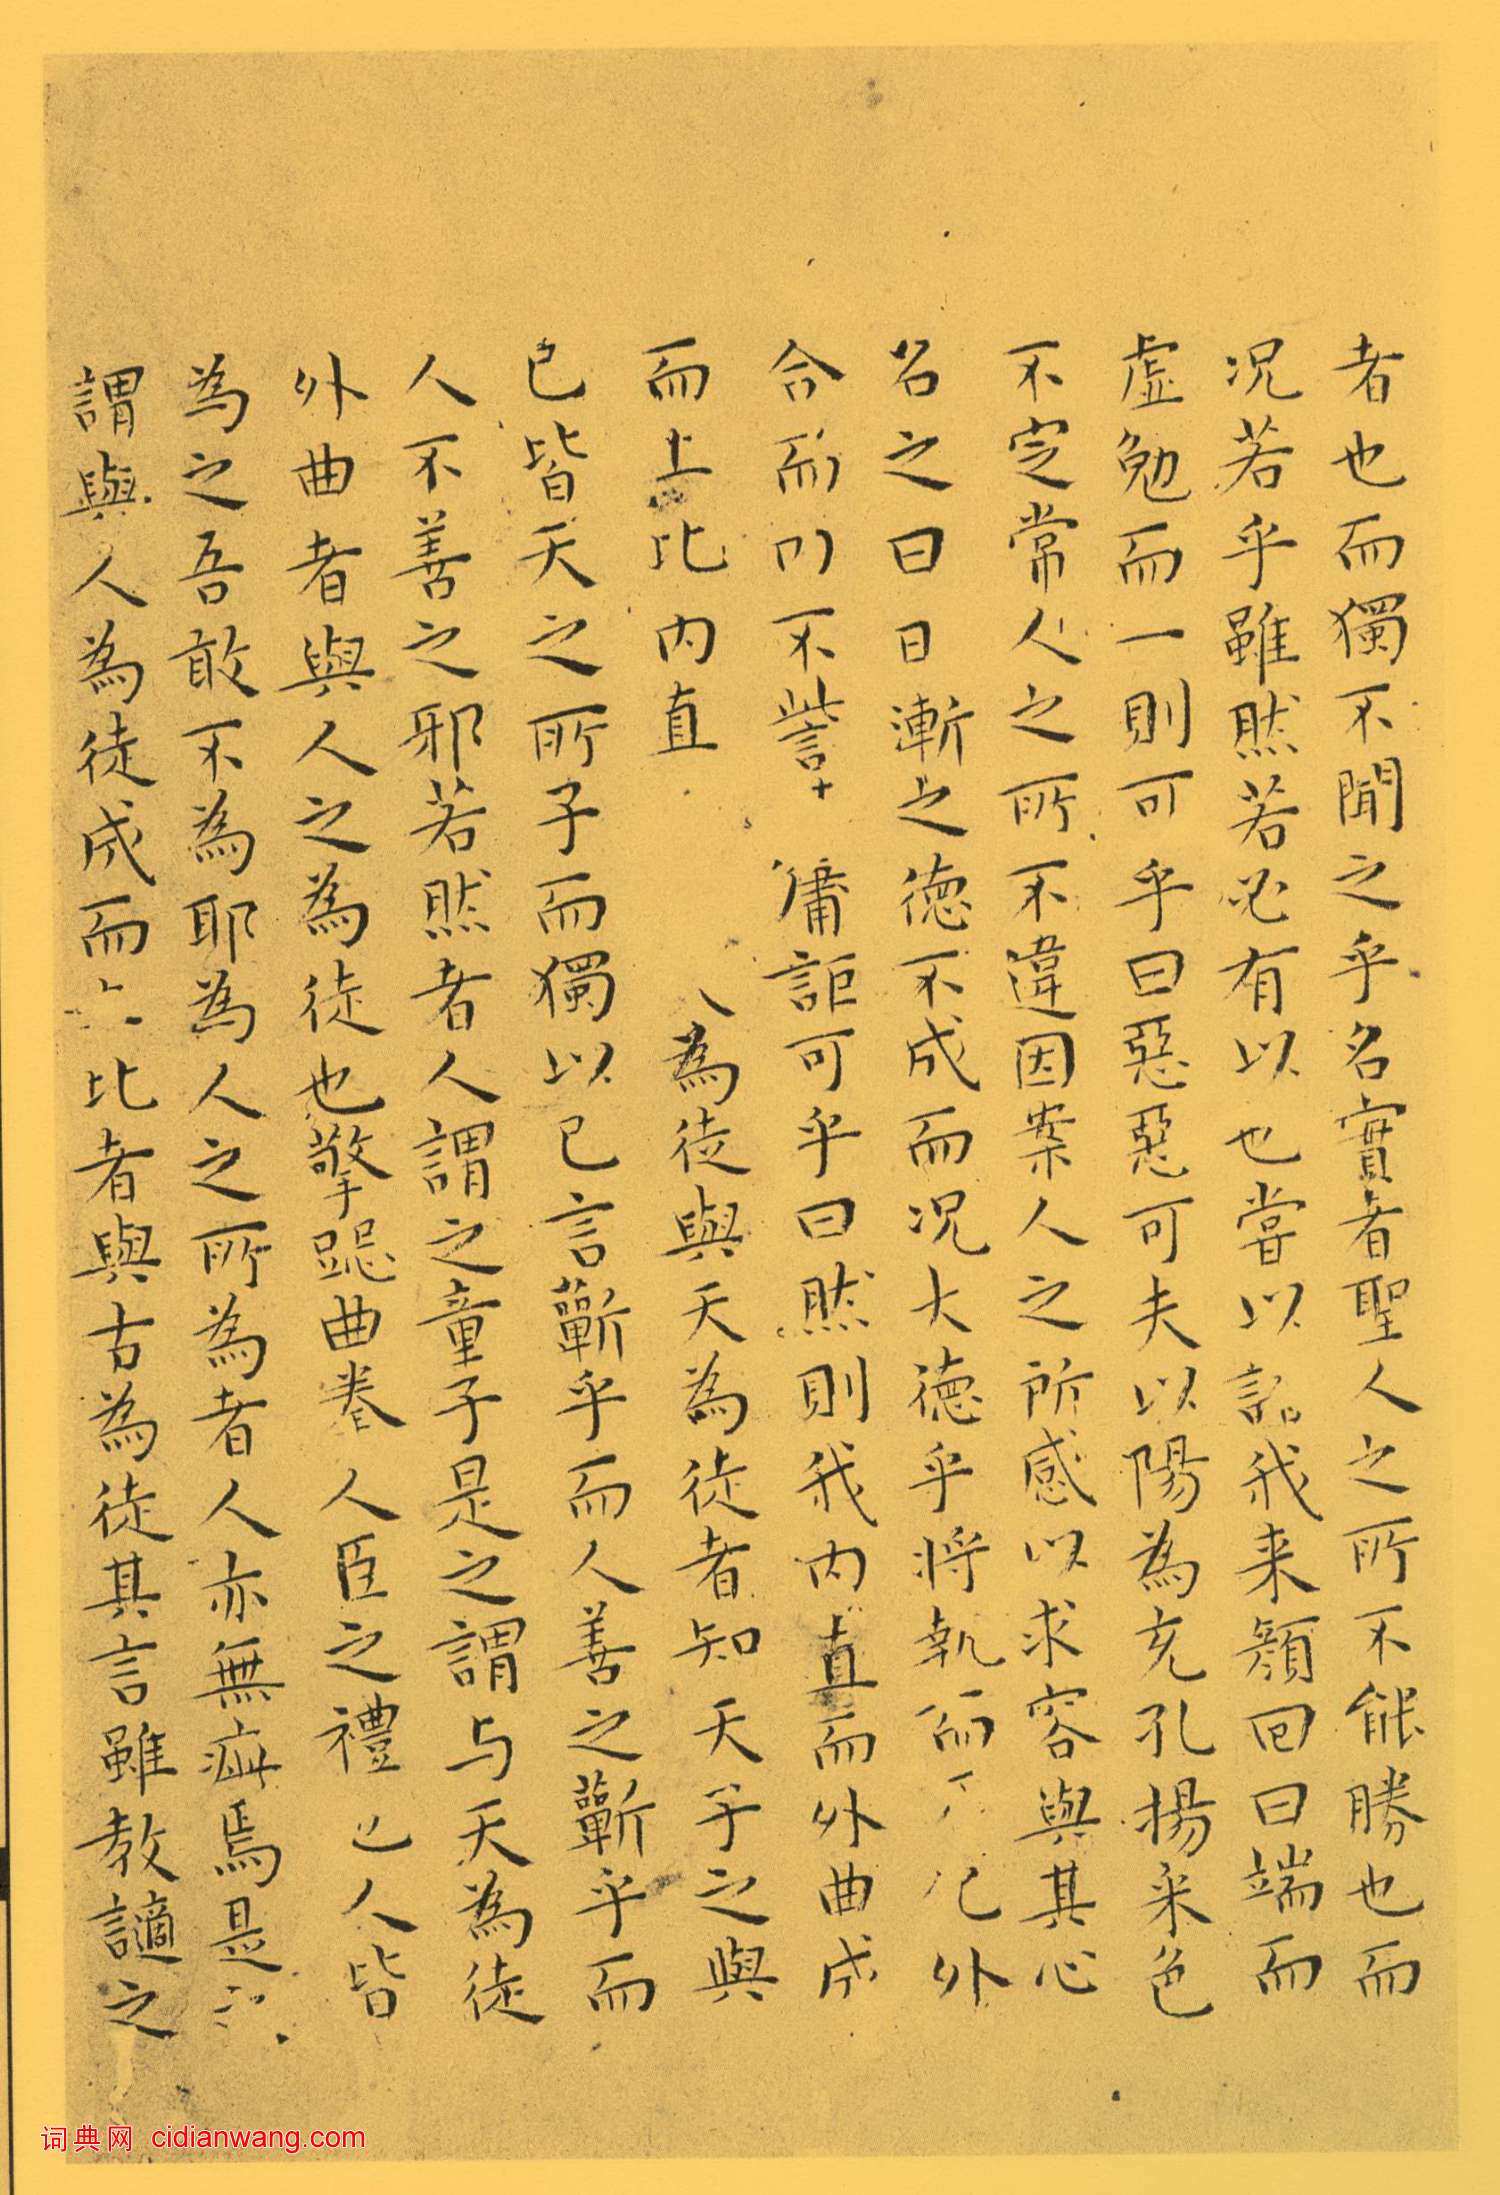 者也而獨不聞之乎名實者聖人之所不能勝也而
况若乎雖然若必有以也嘗以語我来顏回曰端而
虛勉而一則可乎曰惡惡可夫以陽為充孔揚采色
不定常人之所不違因案人之所感以求容與其心
名之曰日漸之德不成而况大德乎將執而不化外
合而内不訾庸詎可乎曰然則我内直而外曲成
而上比内直為徒與天為徒者知天子之與
已皆天之所子而獨以已言蘄乎而人善之蘄乎而
人不善之邪若然者人謂之童子是之謂与天為徒
外曲者與人之為徒也擎跽曲拳人臣之禮也人皆
為之吾敢不為耶為人之所為者人亦無疵焉是
謂與人為徒成而上比者與古為徒其言雖教讁之
词典网 cidianwang.com